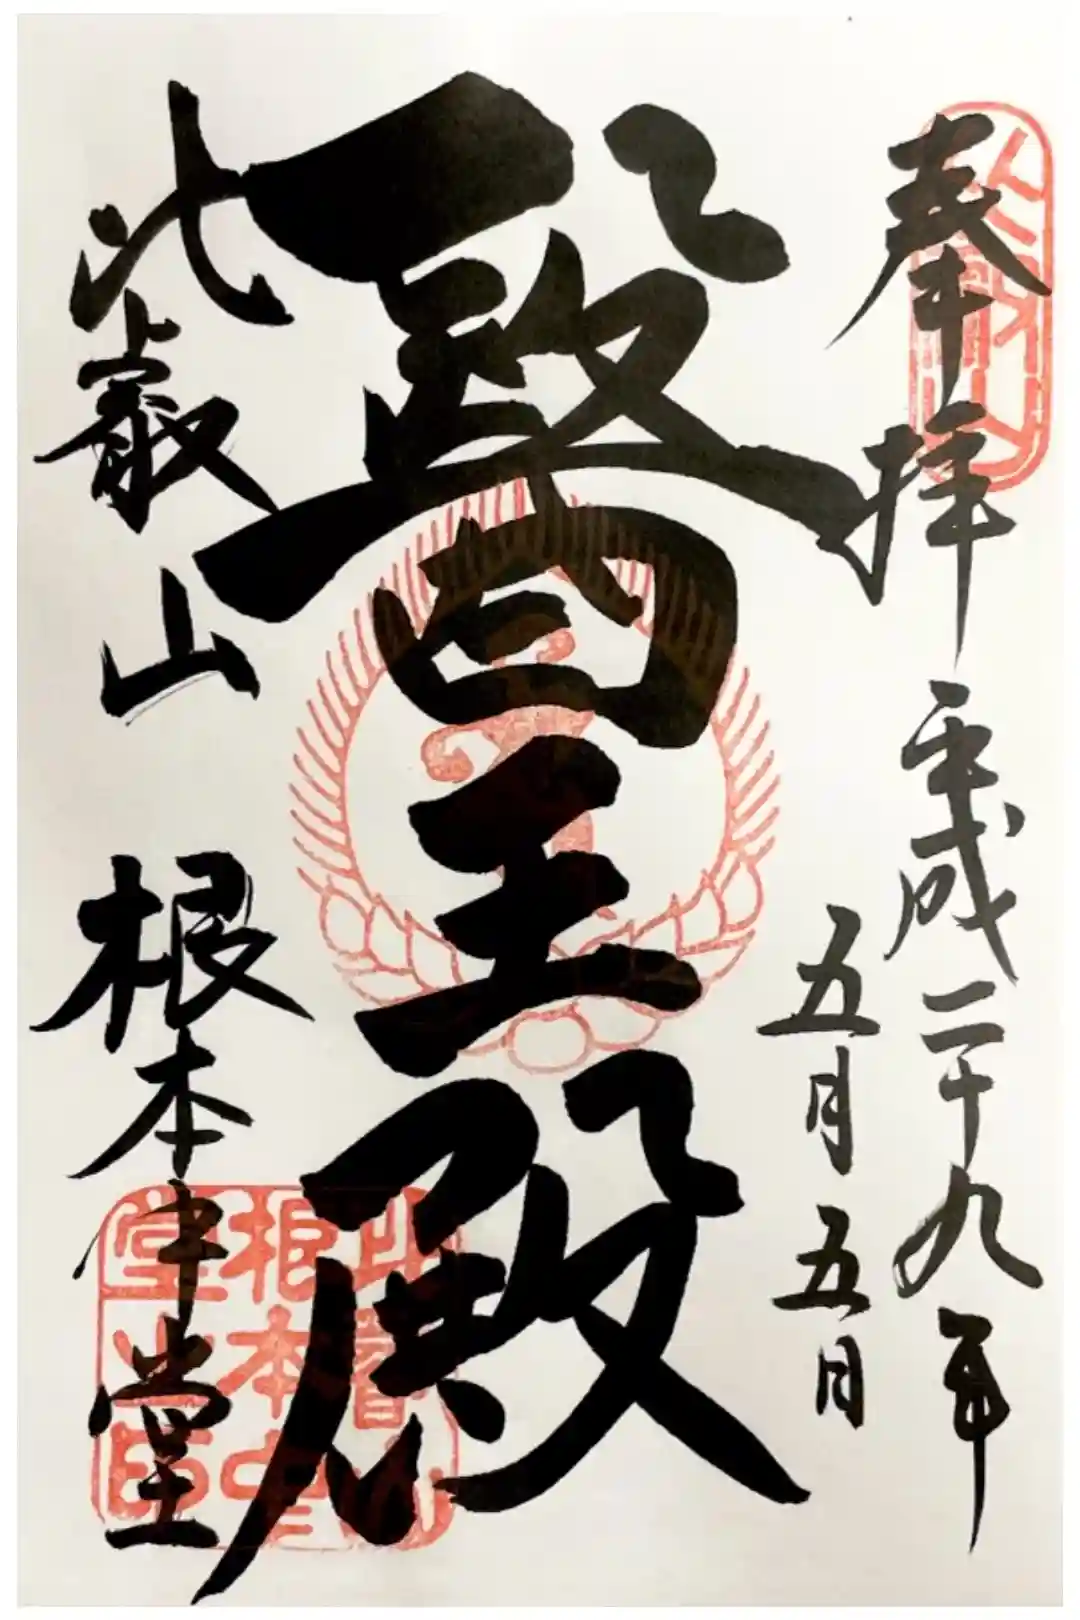 奉拝
平成二十九年
五月五日
醫王殿
比叡山
根本中堂
比叡山
根本中
堂之印